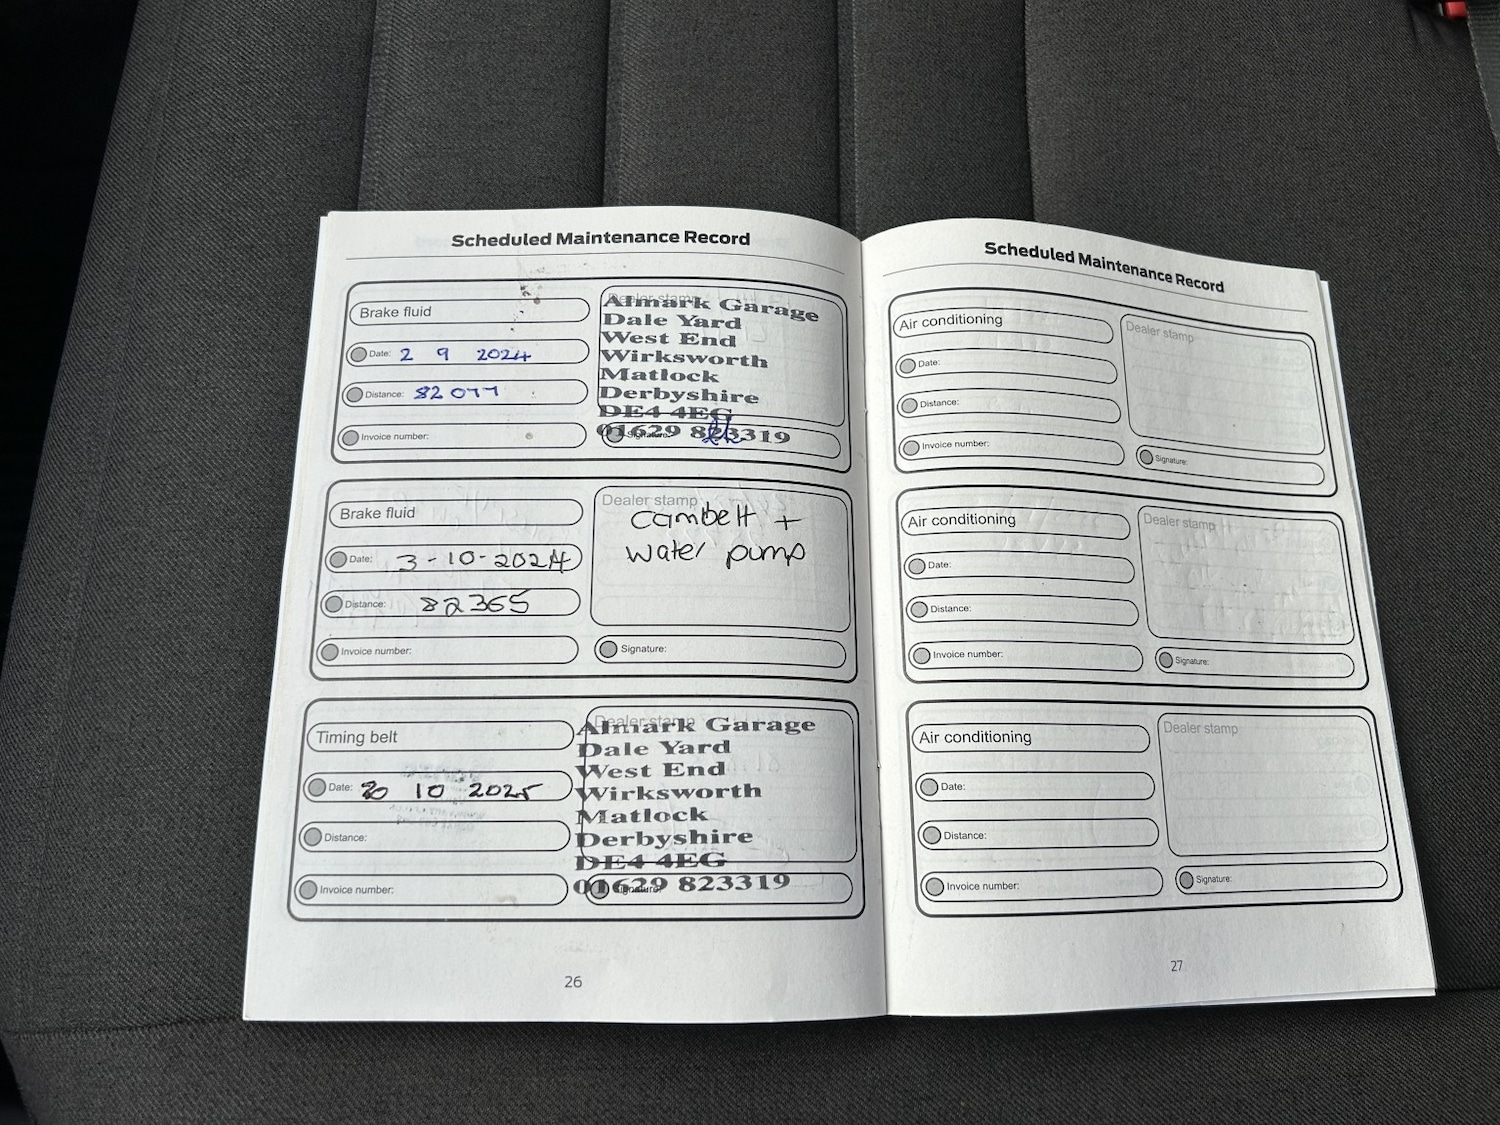 Scheduled Maintenance Record
Brake fluid
Date: 2 9 2024
Distance: 82077
Invoice number:
Dealer stamp
Almark Garage
Dale Yard
West End
Wirksworth
Matlock
Derbyshire
DE4 4EG
01629 823319
Signature:
Brake fluid
Date: 3-10-2024
Distance: 82365
Invoice number:
Dealer stamp
cambelt +
water pump
Signature:
Timing belt
Date: 10 2025
Distance:
Invoice number:
Dealer stamp
Almark Garage
Dale Yard
West End
Wirksworth
Matlock
Derbyshire
DE4 4EG
01629 823319
Signature:
26
Scheduled Maintenance Record
Air conditioning
Date:
Distance:
Invoice number:
Dealer stamp
Signature:
Air conditioning
Date:
Distance:
Invoice number:
Dealer stamp
Signature:
Air conditioning
Date:
Distance:
Invoice number:
Dealer stamp
Signature:
27